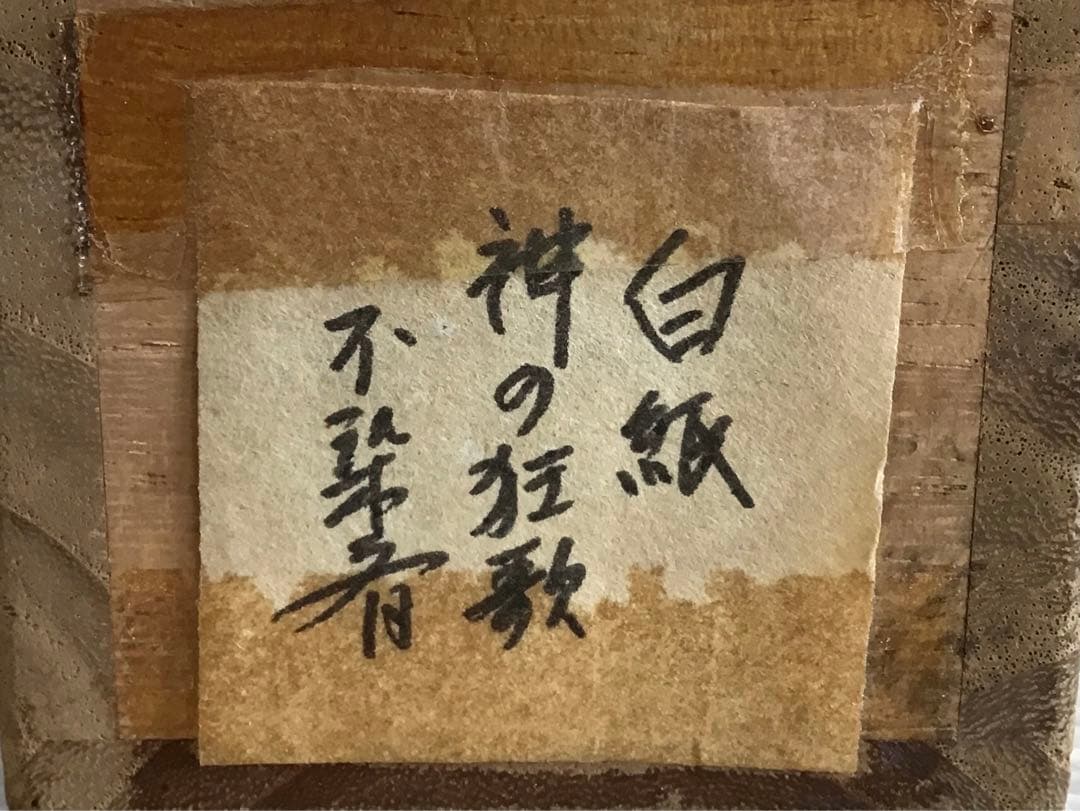 白紙
神の狂歌
不者